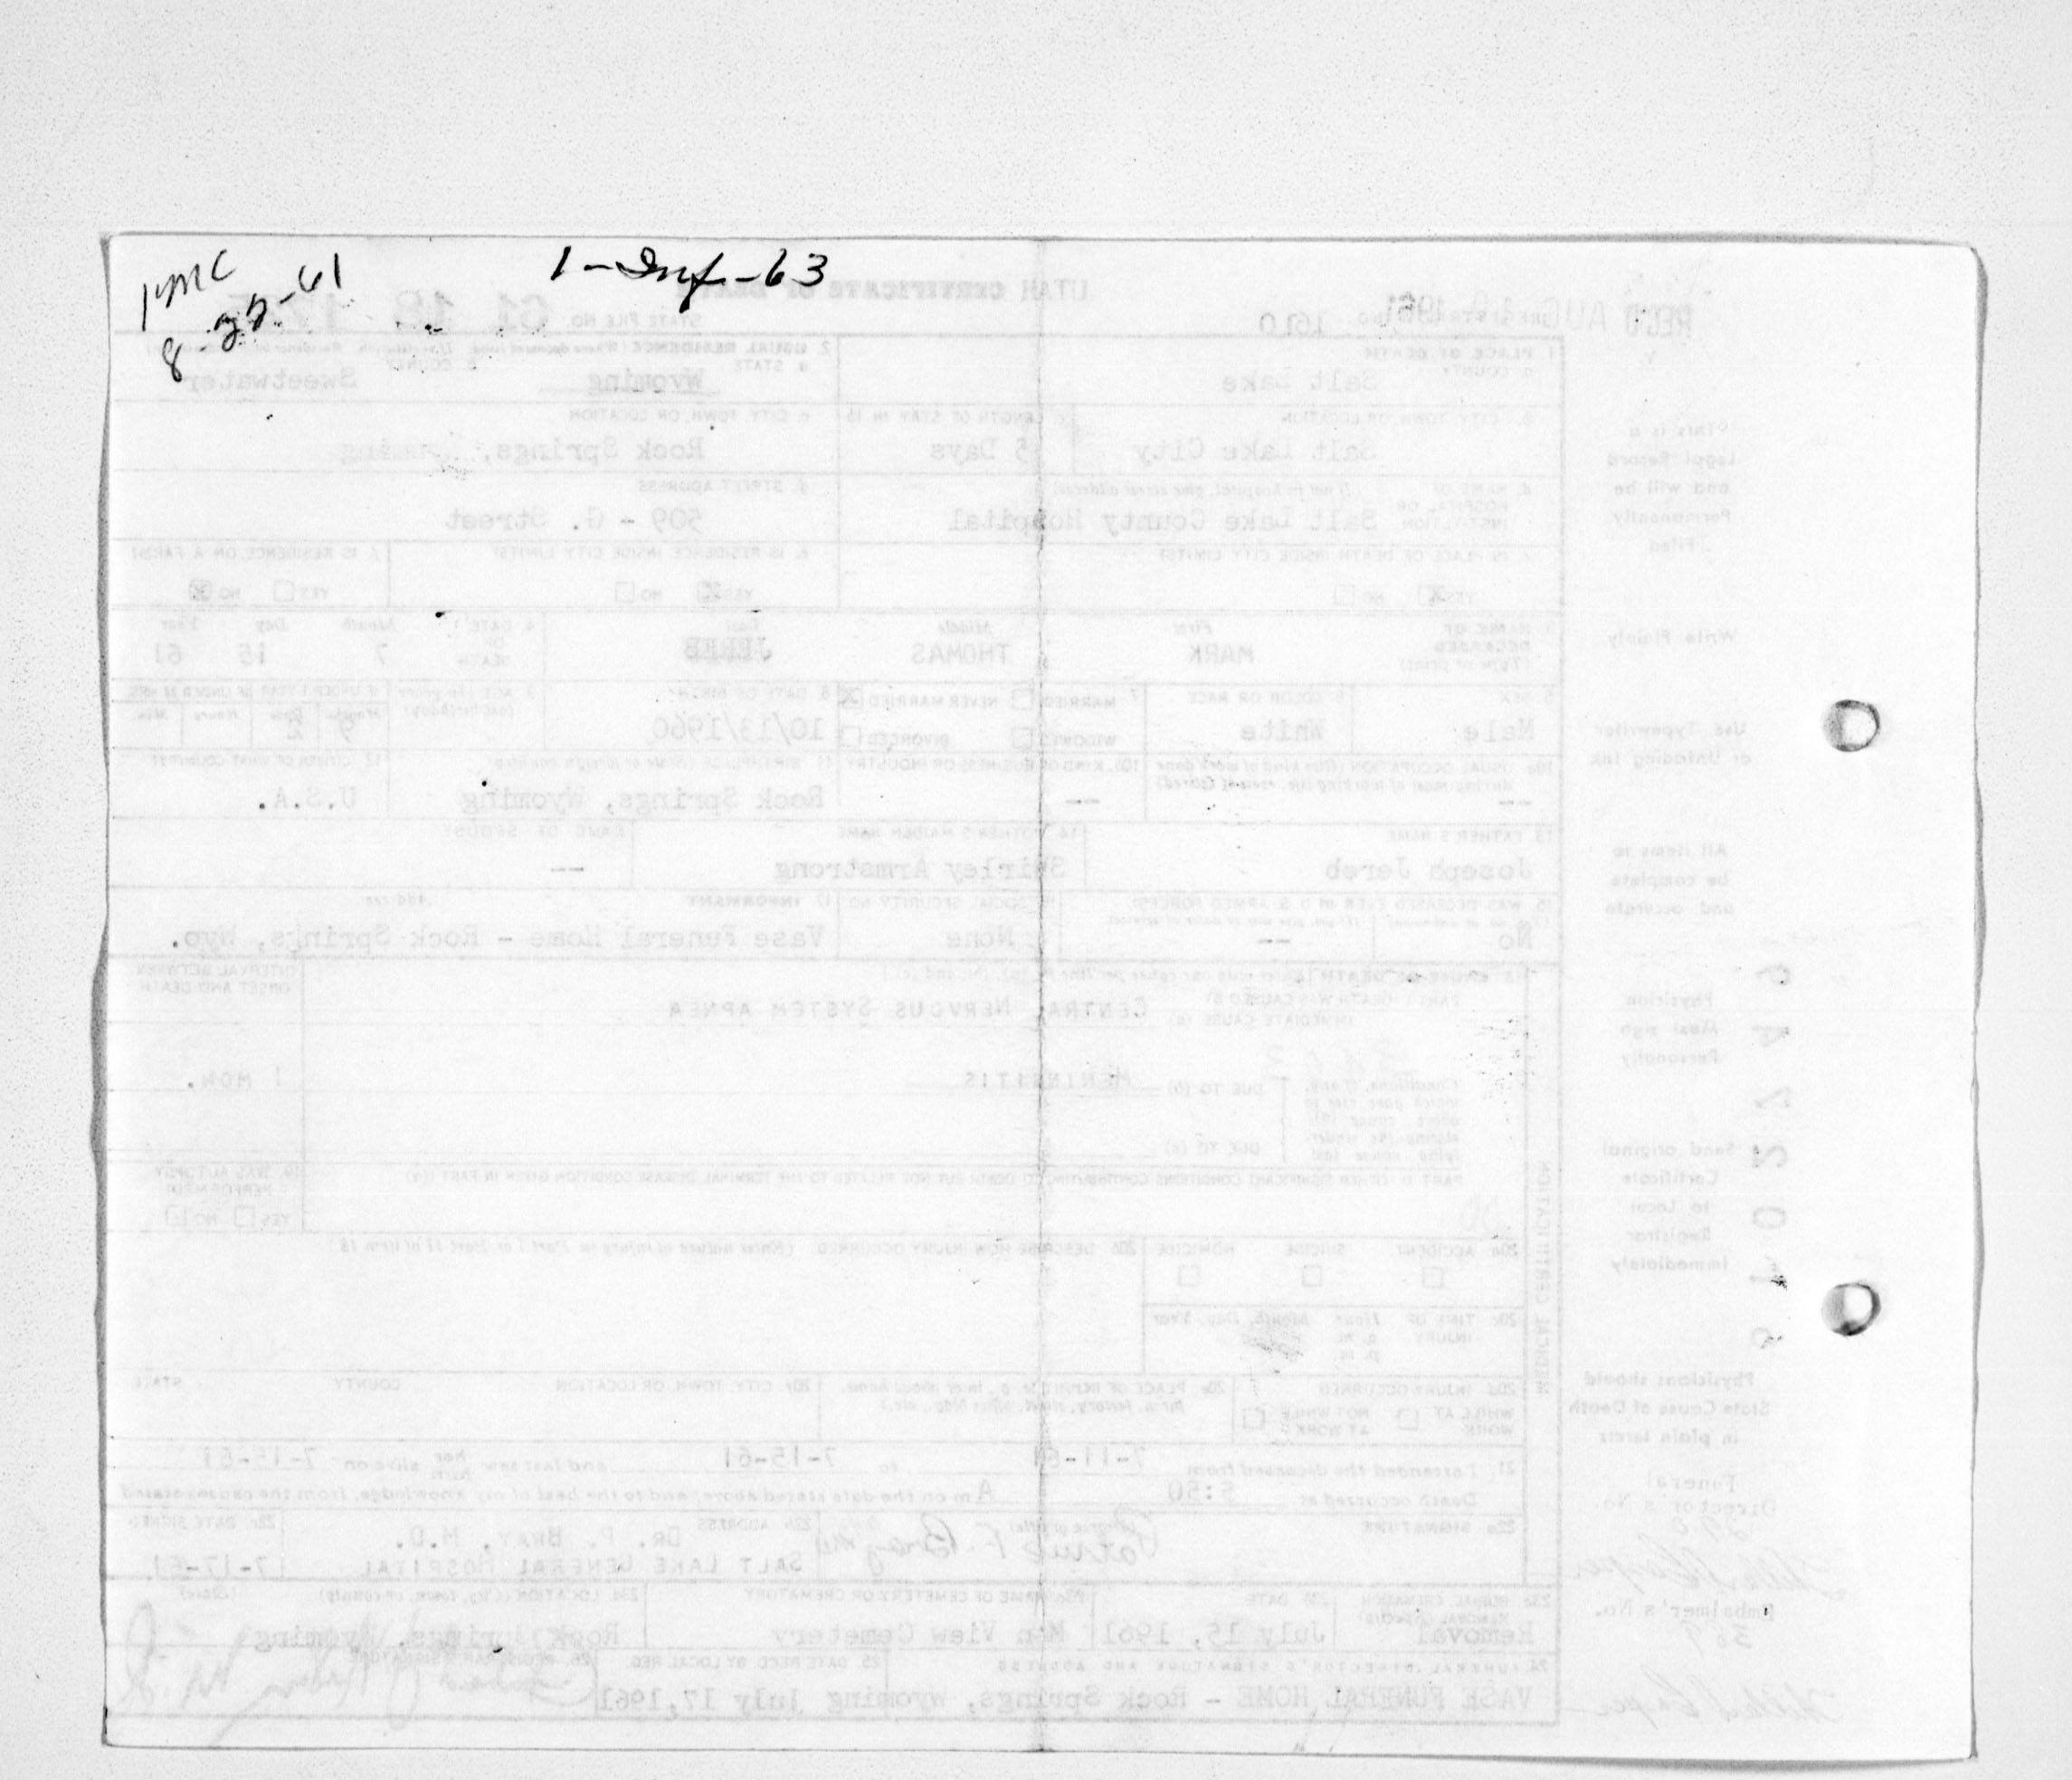 1 mc
8-22-61
1-Inf-63
UTAH CERTIFICATE OF DEATH
REC'D AUG 1961
REGISTRAR'S NO. 1610
STATE FILE NO. 61 18
1 PLACE OF DEATH
a COUNTY
Salt Lake
2 USUAL RESIDENCE
a STATE Wyoming
b COUNTY Sweetwater
b. CITY, TOWN, OR LOCATION
Salt Lake City
c LENGTH OF STAY IN 1b
5 Days
c CITY, TOWN, OR LOCATION
Rock Springs, Wyoming
d. NAME OF HOSPITAL OR INSTITUTION (If not in hospital, give street address)
Salt Lake County Hospital
d. STREET ADDRESS
509 - G. Street
e. IS PLACE OF DEATH INSIDE CITY LIMITS?
YES NO
e. IS RESIDENCE INSIDE CITY LIMITS?
YES NO
f. IS RESIDENCE ON A FARM?
YES NO
NAME OF DECEASED (Type or print)
First Middle Last
MARK THOMAS JEREB
4 DATE OF DEATH
Month Day Year
7 15 61
5. SEX
Male
6 COLOR OR RACE
White
7 MARRIED NEVER MARRIED
WIDOWED DIVORCED
8 DATE OF BIRTH
10/13/1960
9 AGE (In years last birthday)
IF UNDER 1 YEAR IF UNDER 24 HRS.
Months Days Hours Min.
9 2
10a USUAL OCCUPATION (Give kind of work done during most of working life, even if retired)
--
10b. KIND OF BUSINESS OR INDUSTRY
--
11 BIRTHPLACE (State or foreign country)
Rock Springs, Wyoming
12. CITIZEN OF WHAT COUNTRY?
U.S.A.
13 FATHER'S NAME
Joseph Jereb
14 MOTHER'S MAIDEN NAME
Shirley Armstrong
NAME OF SPOUSE
--
15 WAS DECEASED EVER IN U.S. ARMED FORCES?
No --
16 SOCIAL SECURITY NO.
None
17 INFORMANT Address
Vase Funeral Home - Rock Springs, Wyo.
18 CAUSE OF DEATH [Enter only one cause per line for (a), (b), and (c)]
INTERVAL BETWEEN ONSET AND DEATH
PART I DEATH WAS CAUSED BY
IMMEDIATE CAUSE (a)
CENTRAL NERVOUS SYSTEM APNEA
Conditions, if any, which gave rise to above cause (a), stating the underlying cause last
DUE TO (b) MENINGITIS
1 MON.
DUE TO (c)
PART II OTHER SIGNIFICANT CONDITIONS CONTRIBUTING TO DEATH BUT NOT RELATED TO THE TERMINAL DISEASE CONDITION GIVEN IN PART I(a)
19. WAS AUTOPSY PERFORMED?
YES NO
20a ACCIDENT SUICIDE HOMICIDE
20b DESCRIBE HOW INJURY OCCURRED. (Enter nature of injury in Part I or Part II of item 18)
20c TIME OF INJURY Hour Month, Day, Year
a. m.
p. m.
20d INJURY OCCURRED
WHILE AT WORK NOT WHILE AT WORK
20e PLACE OF INJURY (e.g., in or about home, farm, factory, street, office bldg., etc.)
20f CITY, TOWN, OR LOCATION COUNTY STATE
21. I attended the deceased from 7-11-61 to 7-15-61 and last saw her him alive on 7-15-61
Death occurred at 5:50 A m on the date stated above; and to the best of my knowledge, from the causes stated
22a SIGNATURE (Degree or title)
22b ADDRESS DR. P. BRAY, M.D.
SALT LAKE GENERAL HOSPITAL
22c DATE SIGNED
7-17-61
23a BURIAL, CREMATION, REMOVAL (Specify)
Removal
23b DATE
July 15, 1961
23c NAME OF CEMETERY OR CREMATORY
Mtn View Cemetery
23d LOCATION (City, town, or county) (State)
Rock Springs, Wyoming
24 FUNERAL DIRECTOR'S SIGNATURE AND ADDRESS
VASE FUNERAL HOME - Rock Springs, Wyoming
25 DATE RECD BY LOCAL REG
July 17, 1961
26. REGISTRAR'S SIGNATURE
MEDICAL CERTIFICATION
This is a Legal Record and will be Permanently Filed
Write Plainly
Use Typewriter or Unfading Ink
All items to be complete and accurate
Physician Must sign Personally
Send original Certificate to Local Registrar Immediately
Physicians should State Cause of Death in plain terms
Funeral Director's No.
Embalmer's No.
389